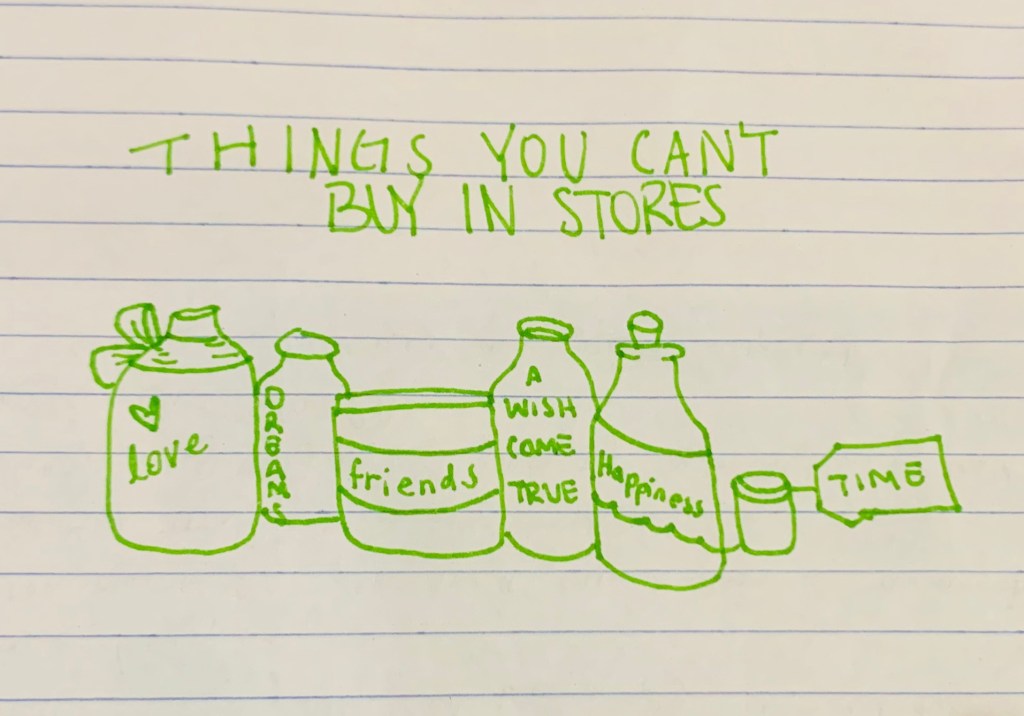 THINGS YOU CAN'T
BUY IN STORES
love
DREAMS
friends
A
WISH
COME
TRUE
Happiness
TIME